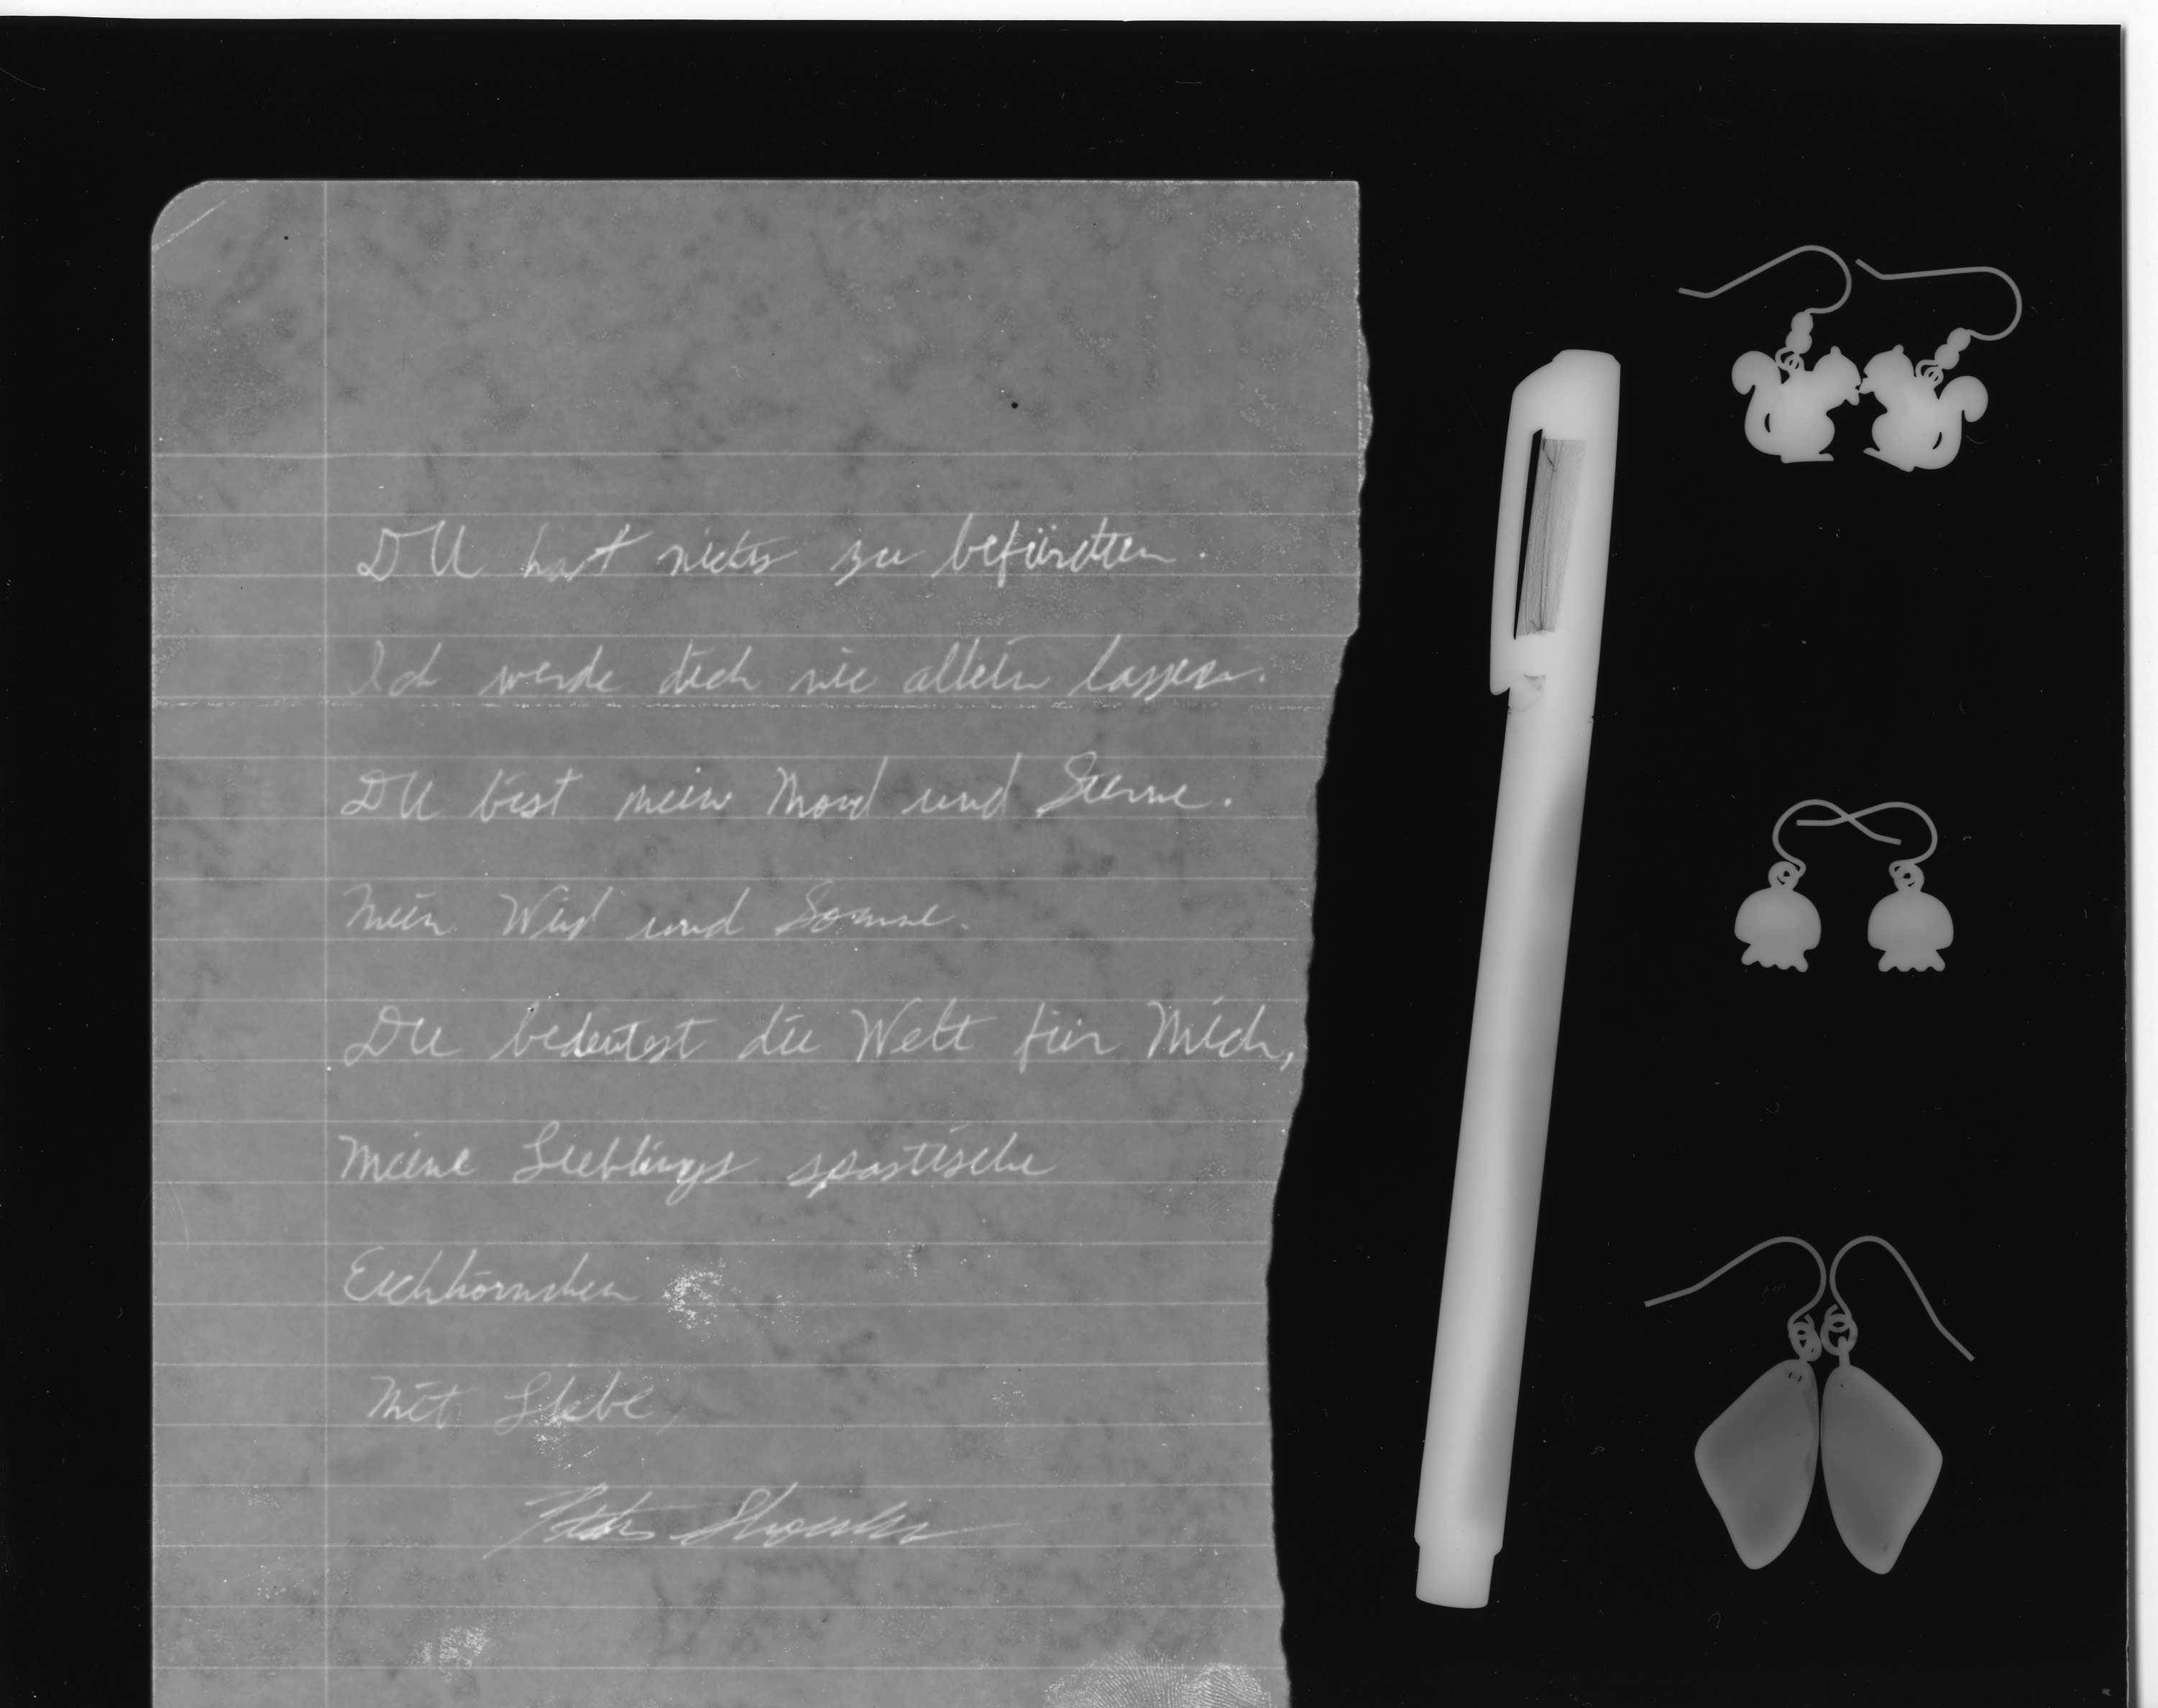 DU hast nichts zu befürchten.
Ich werde dich nie allein lassen.
DU bist mein Mond und Sterne.
Mein Wind und Sonne.
DU bedeutest die Welt für Mich,
meine Lieblings spastische
Eichhörnchen
Mit Liebe,